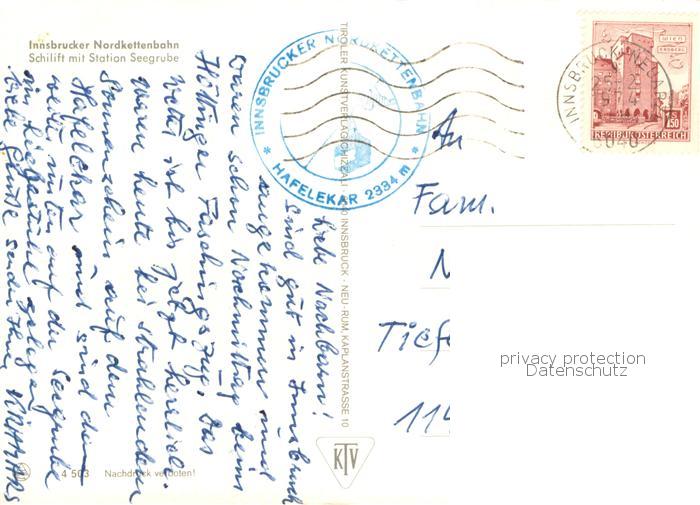 Innsbrucker Nordkettenbahn
Schilift mit Station Seegrube
INNSBRUCKER NORDKETTENBAHN
* HAFELEKAR 2334 m *
TIROLER KUNSTVERLAG CHIZZALI · INNSBRUCK - NEU-RUM, KAPLANSTRASSE 10
WIEN
ERDBERG
S 1.50
REPUBLIK ÖSTERREICH
INNSBRUCK
6040
An
Fam.
N
Tief
114
Liebe Nachbarn!
Sind gut in Innsbruck
angekommen und
waren schon Nachmittag beim
Höttinger Faschingszug. Das
Wetter ist bis jetzt herrlich.
waren heute bei strahlendem
Sonnenschein auf dem
Hafelekar und sind dann
weiter unten auf der Seegrube
im Liegestuhl gelegen.
Liebe Grüße senden Ihnen
KTV
4 503 Nachdruck verboten!
privacy protection
Datenschutz